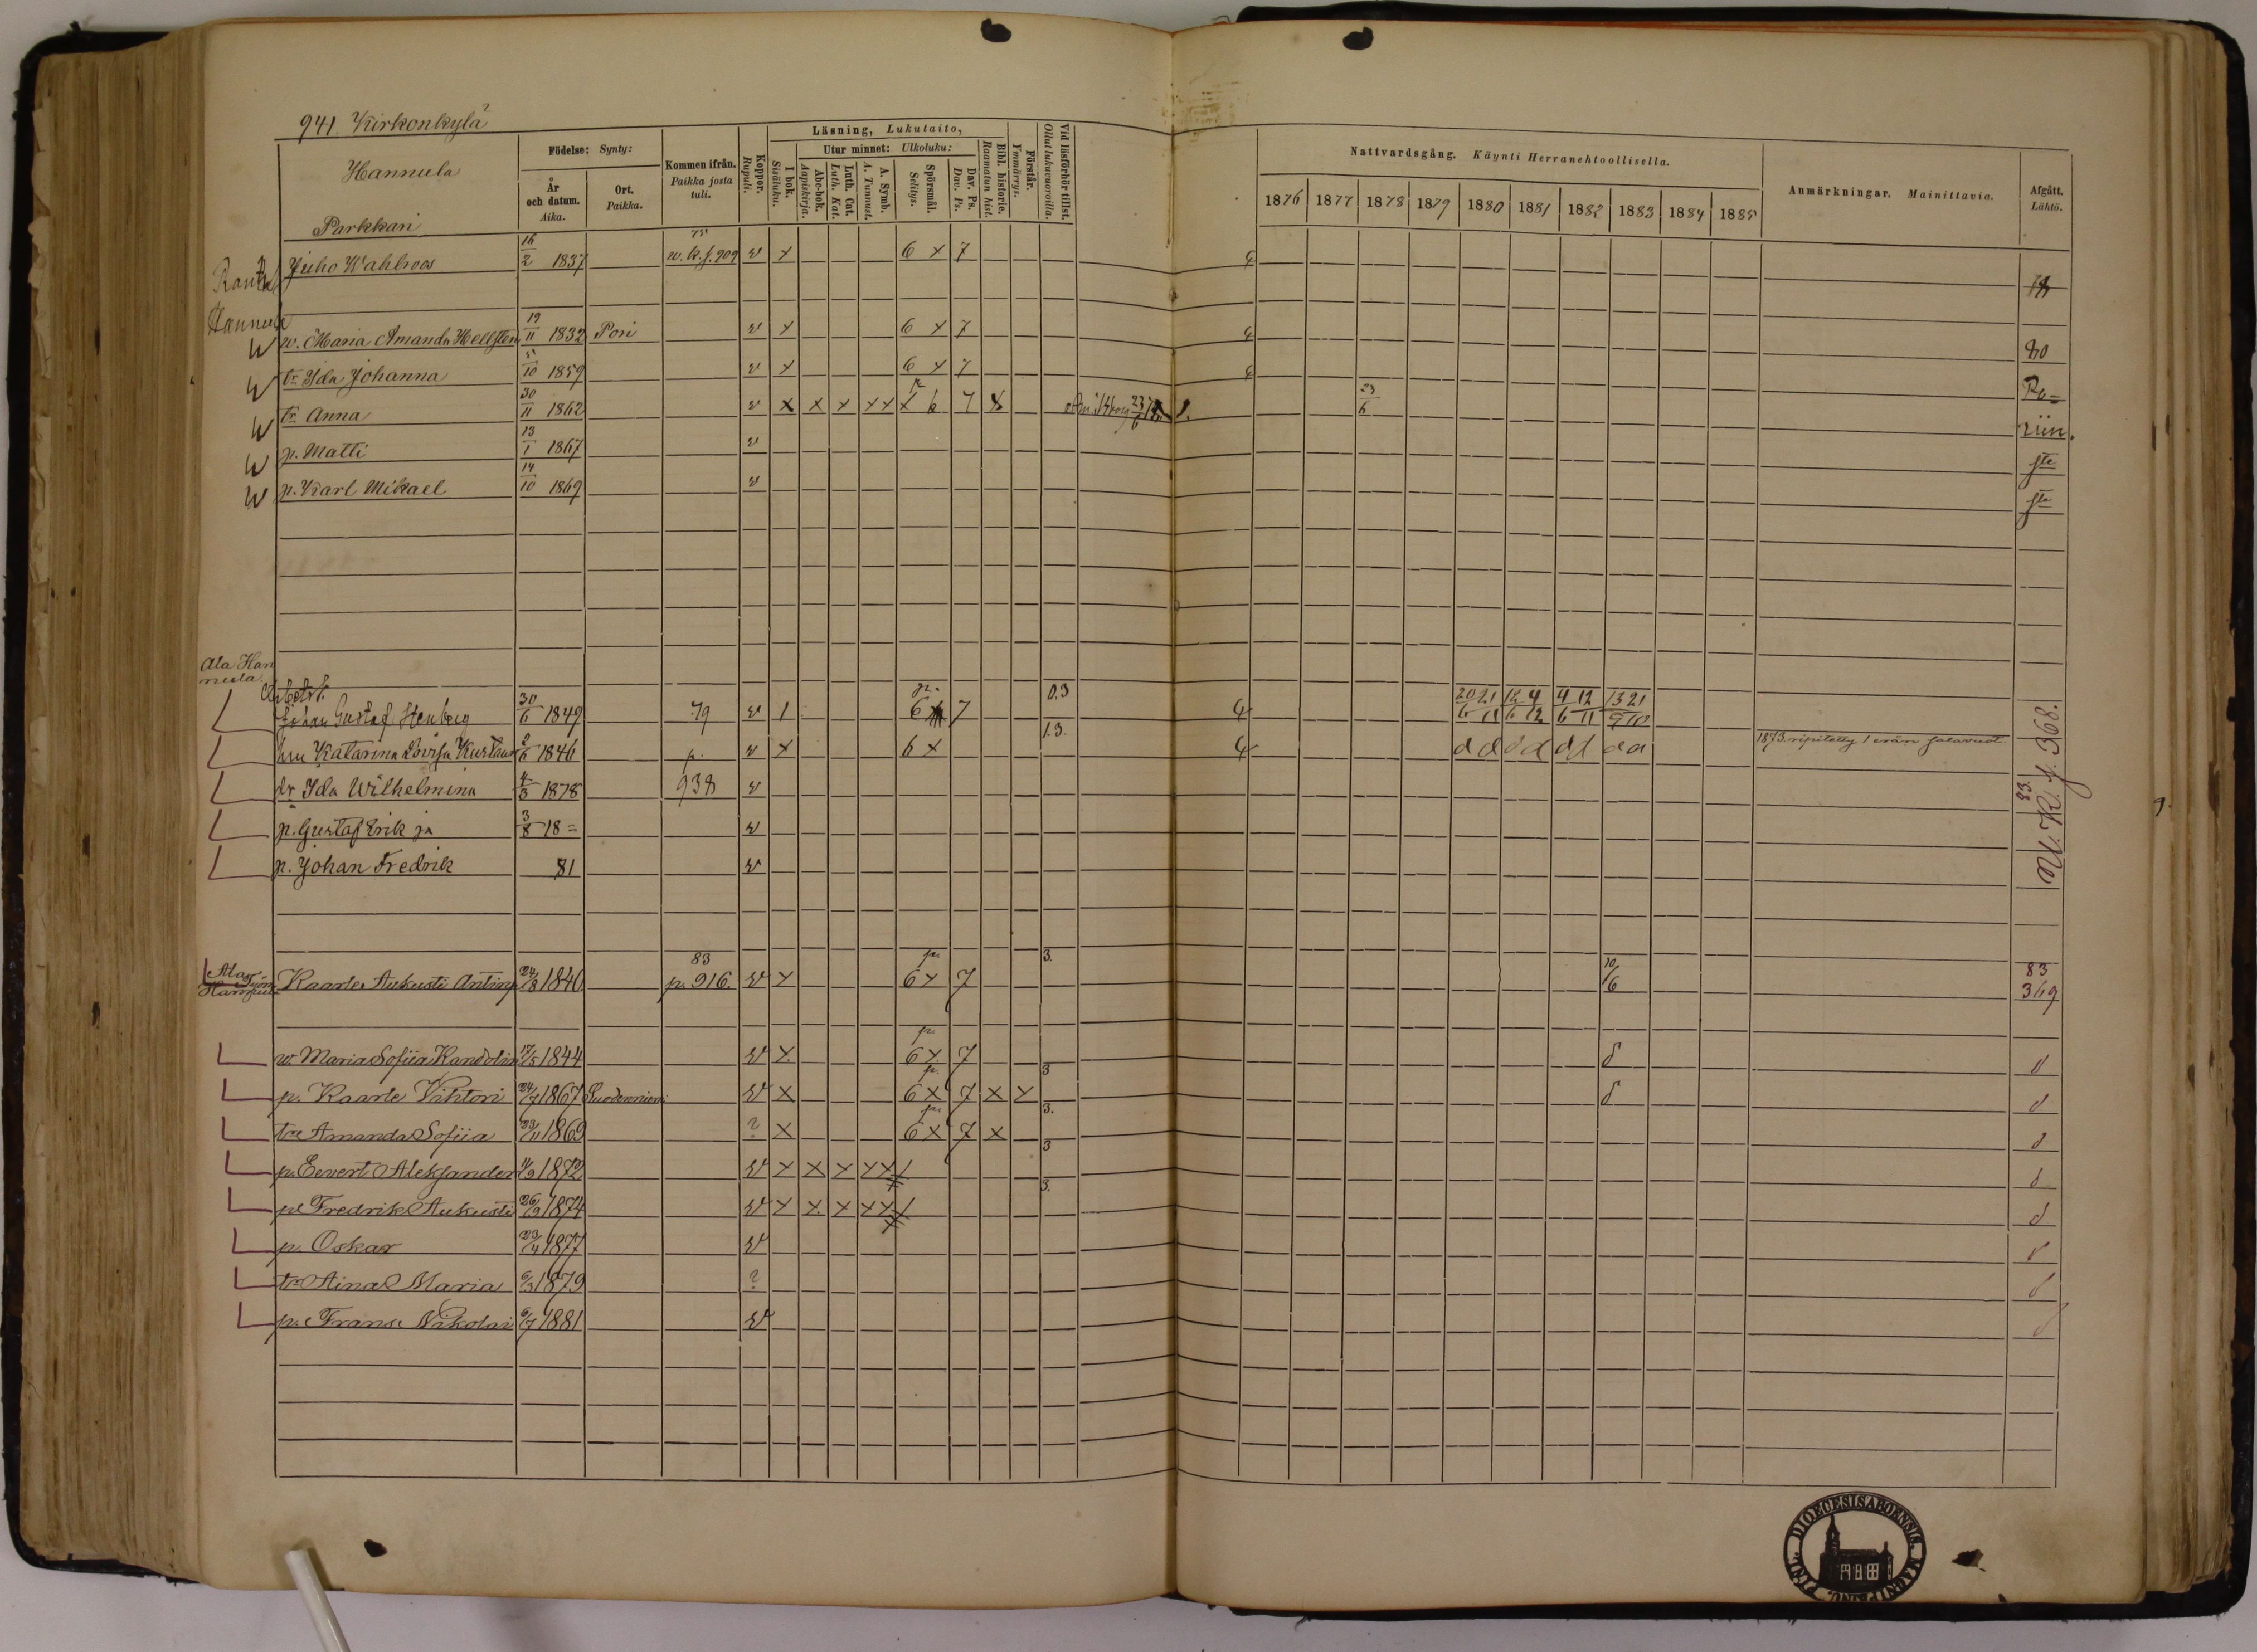 941. Kirkonkylä
Hannula
Parkkari
Födelse: Synty:
År och datum. Aika.
Ort. Paikka.
Kommen ifrån. Paikka josta tuli.
Koppor. Rupuli.
Läsning, Lukutaito,
I bok. Sisäluku.
Utur minnet: Ulkoluku:
Abc-bok. Aapiskirja.
Luth. Cat. Luth. Kat.
A. Symb. A. Tunnust.
Spörsmål. Selitys.
Dav. Ps. Dav. Ps.
Bibl. historie. Raamatun hist.
Förstår. Ymmärrys.
Vid läsförhör tillst. Ollut lukuvuoroilla.
Nattvardsgång. Käynti Herranehtoollisella.
1876 1877 1878 1879 1880 1881 1882 1883 1884 1885
Anmärkningar. Mainittavia.
Afgått. Lähtö.
Juho Wahlroos 16/2 1837 75 w.k.s. 909 v x 6 x 7
Hannula
w. Maria Amanda Hellsten 19/11 1832 Pori v x 6 x 7
tr Ida Johanna 5/10 1859 v x 6 x 7
tr Anna 30/11 1862 v x x x x x 7 23/6
p. Matti 13/1 1867 v
p. Karl Mikael 14/10 1869 v
Ala Hannula
Johan Gustaf Stenberg 30/6 1849 79 v 1 p. 6 7 0.3 20 21 12 4 4 12 13 21
6 11 6 12 6 11 9 10
hu Katarina Lovisa Kustaan 2/6 1846 p. v x 6 x 1.3. d d d d d d d d 1873 ripitetty
dr Ida Wilhelmina 4/3 1878 938 v
p. Gustaf Erik ja 3/8 18 = v
p. Johan Fredrik 81 v
83. U. K. s. 368.
Kaarle Aukusti Antinp. 24/8 1840 83 p. 916. v x p. 6 x 7 3. 10/6 83 369
w Maria Sofiia Randolin 17/5 1844 v x p. 6 x 7 d d
p. Kaarle Vihtori 24/7 1867 Suodenniemi v x p. 6 x 7 x x 3 d d
tr Amanda Sofiia 23/11 1869 ? x p. 6 x 7 x 3. d
p. Eevert Aleksander 11/9 1872 v x x x x x 3 d
p. Fredrik Aukusti 26/9 1874 v x x x x x 3. d
p. Oskar 23/4 1877 v d
tr Aina Maria 6/3 1879 ? d
p. Frans Nikolai 6/7 1881 v d
DIOECESIS ABOENSIS